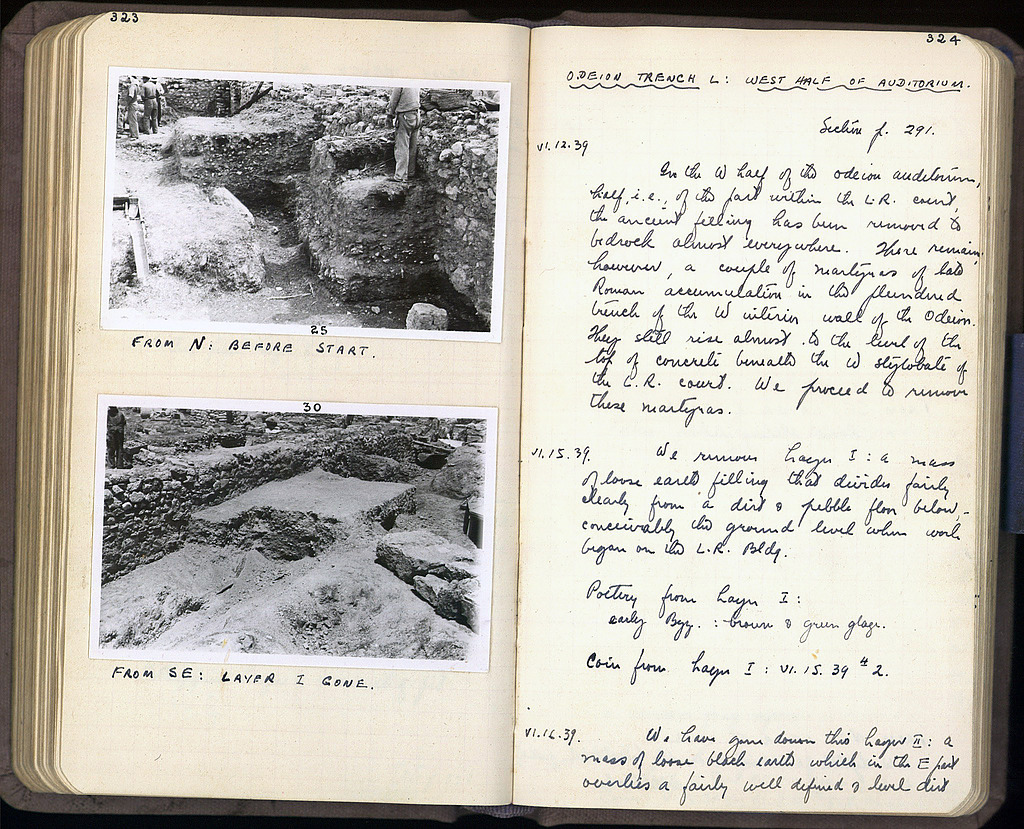 323
25
FROM N: BEFORE START.
30
FROM SE: LAYER I GONE.
324
ODEION TRENCH L: WEST HALF OF AUDITORIUM.
Section p. 291.
VI.12.39
In the W half of the odeion auditorium,
half, i.e., of the part within the L.R. court,
the ancient filling has been removed to
bedrock almost everywhere. There remain,
however, a couple of martyras of late
Roman accumulation in the plundered
trench of the W interior wall of the Odeion.
They still rise almost to the level of the
top of concrete beneath the W stylobate of
the L.R. court. We proceed to remove
these martyras.
VI.15.39. We remove Layer I: a mass
of loose earth filling that divides fairly
clearly from a dirt & pebble floor below, -
conceivably the ground level when work
began on the L.R. Bldg.
Pottery from Layer I:
early Byz. : brown & green glaze.
Coin from Layer I: VI.15.39 # 2.
VI.16.39. We have gone down this Layer II: a
mass of loose black earth which in the E part
overlies a fairly well defined & level dirt